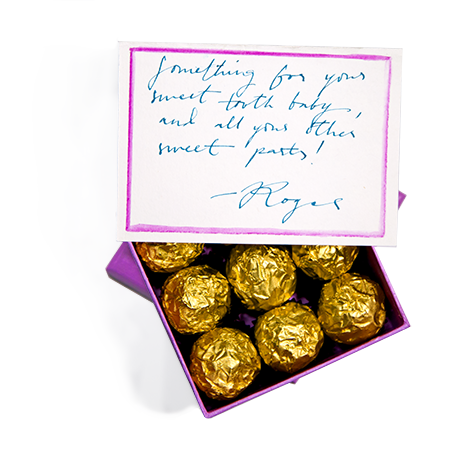 Something for your
sweet tooth baby,
and all your other
sweet parts!
—Roger